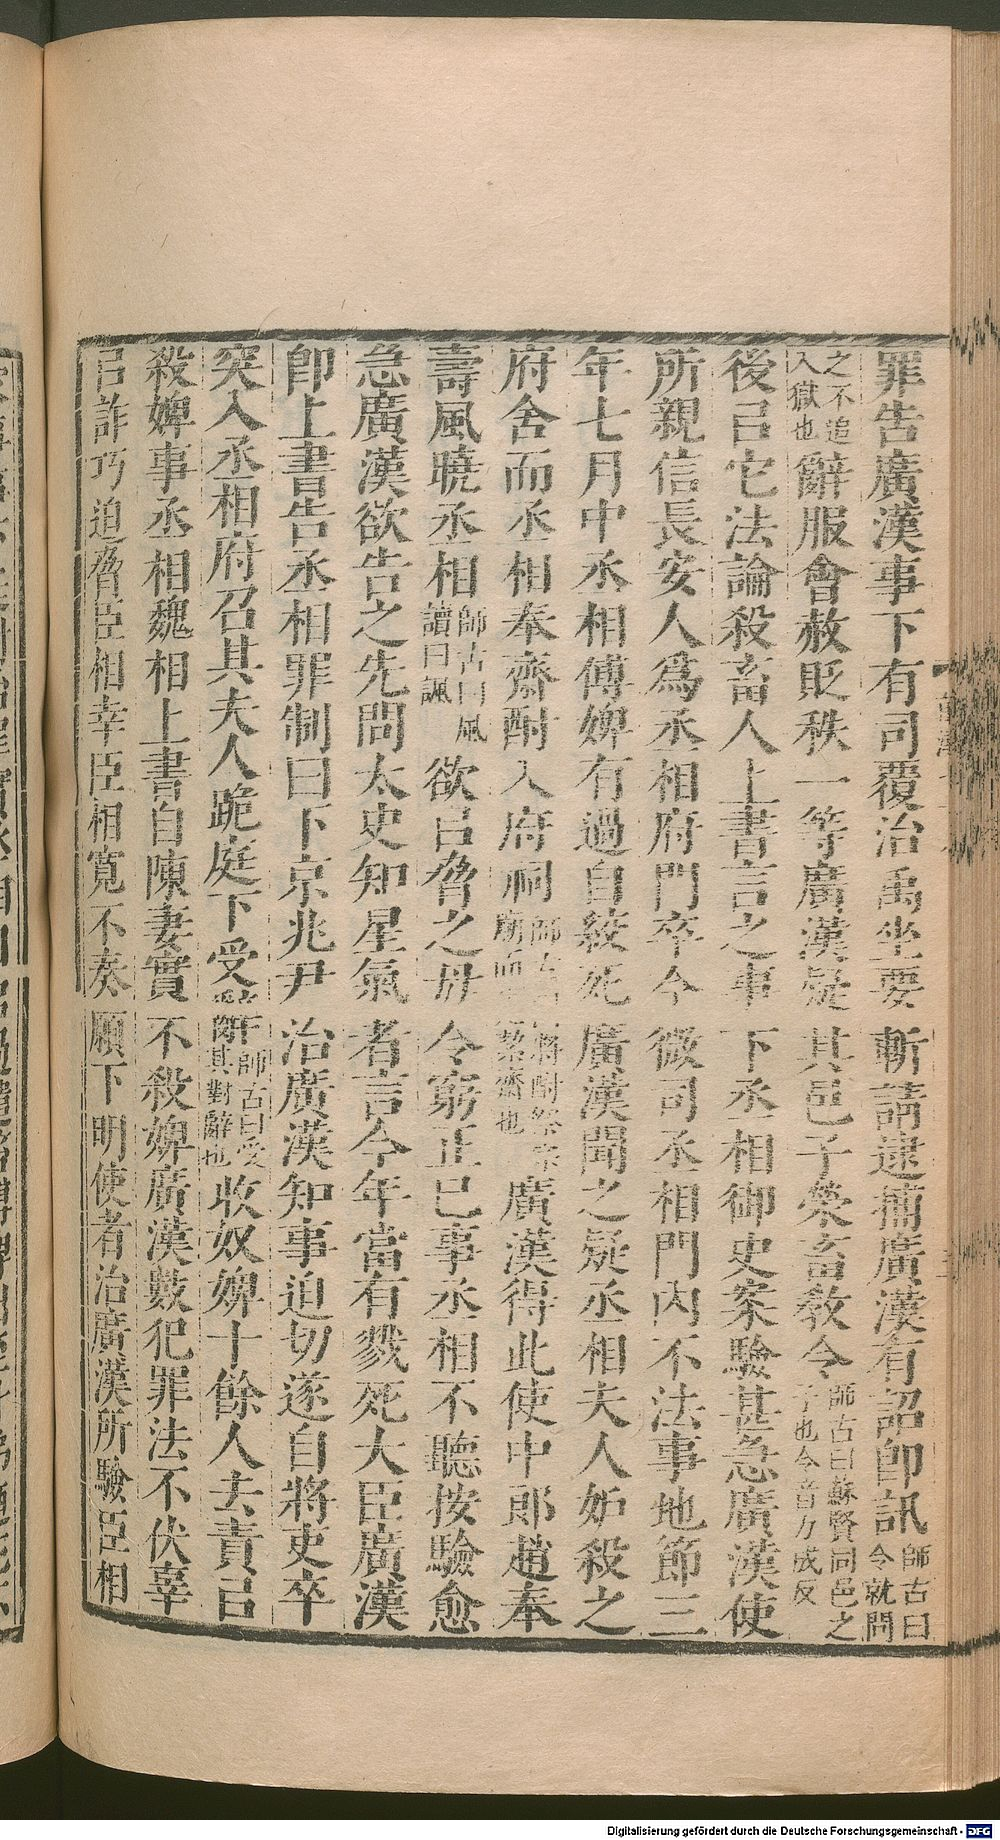 罪告廣漢事下有司覆治禹坐要斬請逮捕廣漢有詔卽訊師古曰令就問
之不追入獄也辭服會赦貶秩一等廣漢疑其邑子榮畜敎令師古曰蘇賢同邑之子也令音力成反
後㠯它法論殺畜人上書言之事下丞相御史案驗甚急廣漢使
所親信長安人爲丞相府門卒令微司丞相門內不法事地節三
年七月中丞相傅婢有過自絞死廣漢聞之疑丞相夫人妒殺之
府舍而丞相奉齋酎入府祠師古曰將酎祭宗廟而絜齋也廣漢得此使中郎趙奉
壽風曉丞相師古曰風讀曰諷欲㠯脅之毋令窮正己事丞相不聽按驗愈
急廣漢欲告之先問太史知星氣者言今年當有戮死大臣廣漢
卽上書告丞相罪制曰下京兆尹治廣漢知事迫切遂自將吏卒
突入丞相府召其夫人跪庭下受辭師古曰受其對辭也收奴婢十餘人去責㠯
殺婢事丞相魏相上書自陳妻實不殺婢廣漢數犯罪法不伏辜
㠯詐巧迫脅臣相幸臣相寬不奏願下明使者治廣漢所驗臣相
Digitalisierung gefördert durch die Deutsche Forschungsgemeinschaft - DFG